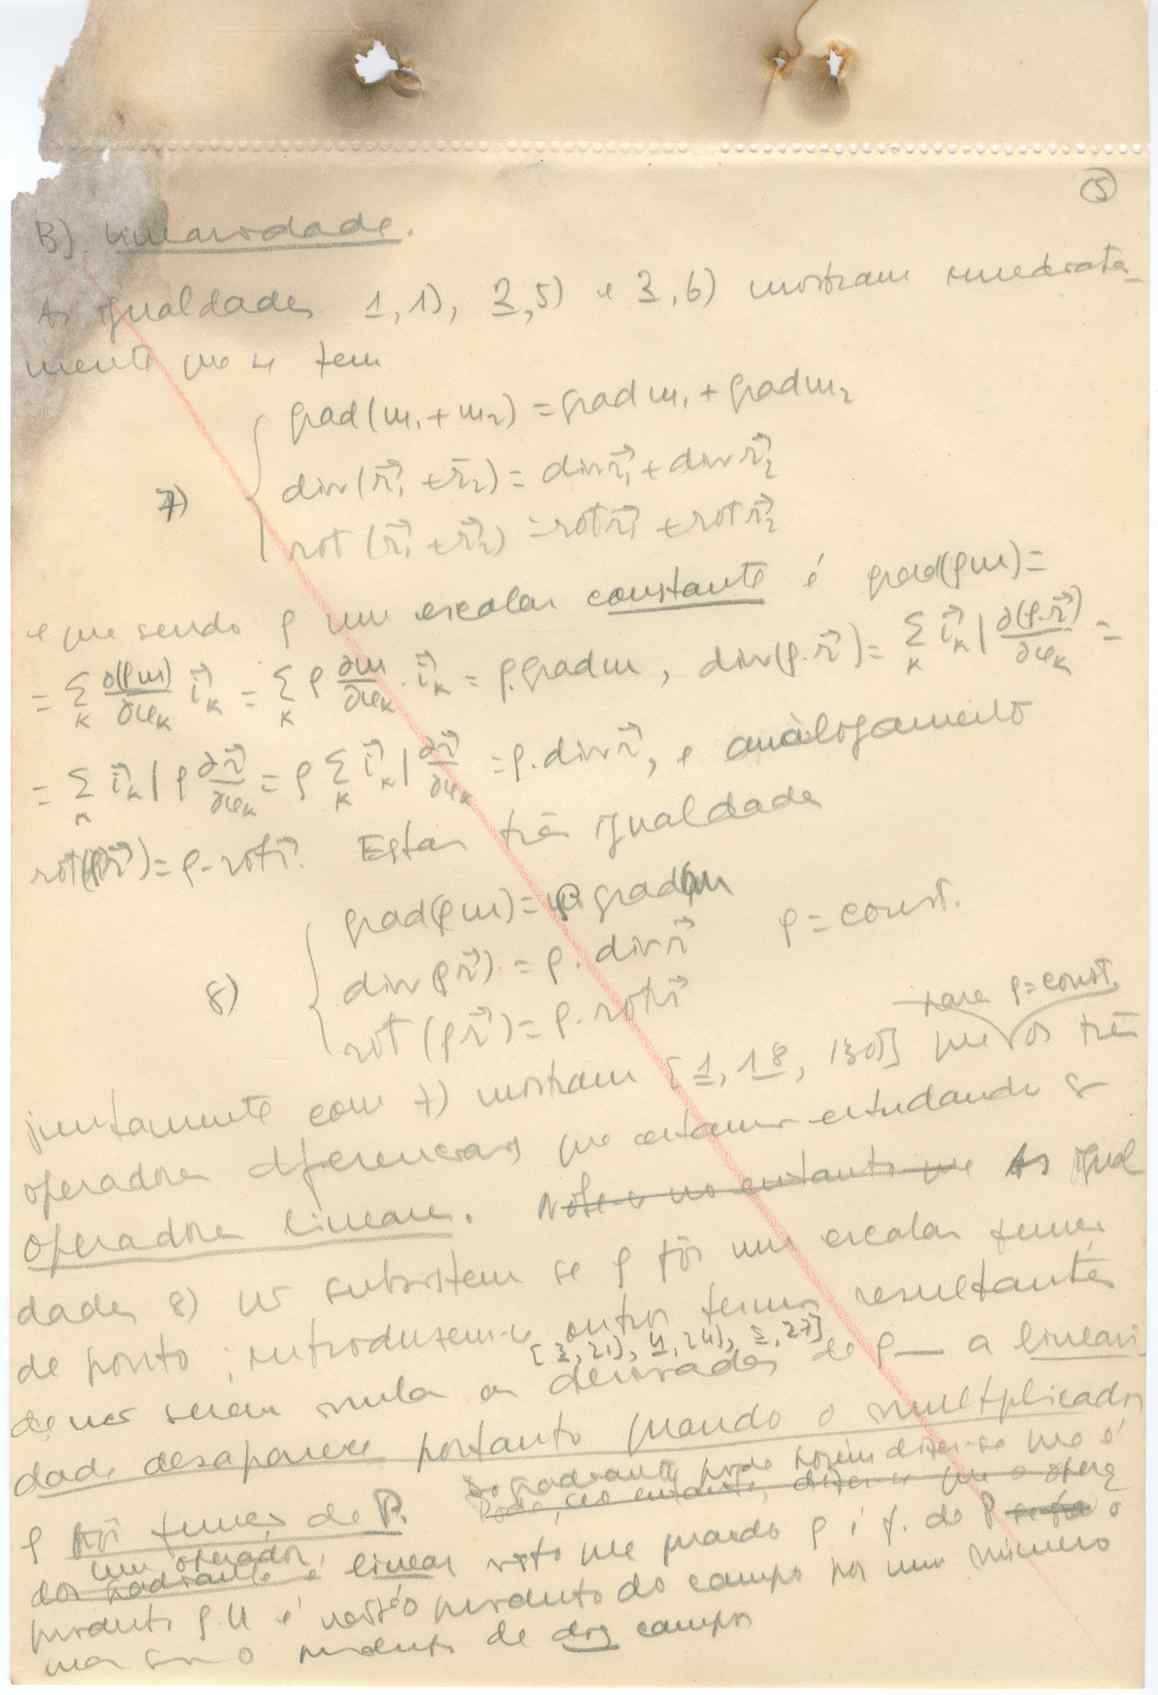 5
B). Linearidade.
As igualdades 1,1), 3,5) e 3,6) mostram imediata-
mente que se tem
grad(m₁ + m₂) = grad m₁ + grad m₂
7) div(r⃗₁ + r⃗₂) = div r⃗₁ + div r⃗₂
rot(r⃗₁ + r⃗₂) = rot r⃗₁ + rot r⃗₂
e que sendo ρ um escalar constante é grad(ρm) =
= Σ_K ∂(ρm)/∂u_K i⃗_K = Σ_K ρ ∂m/∂u_K · i⃗_K = ρ.grad m, div(ρ.r⃗) = Σ_K i⃗_K | ∂(ρ.r⃗)/∂u_K =
= Σ_K i⃗_K | ρ ∂r⃗/∂u_K = ρ Σ_K i⃗_K | ∂r⃗/∂u_K = ρ.div r⃗, e anàlogamente
rot(ρr⃗) = ρ.rot r⃗. Estas três igualdades
grad(ρm) = ρ.grad m
8) div(ρr⃗) = ρ.div r⃗ ρ = const.
rot(ρr⃗) = ρ.rot r⃗
para ρ = const.
juntamente com 7) mostram [1, 18, 130] que os três
operadores diferenciais que estamos estudando são
operadores lineares. Note-se no entanto que As igual
dades 8) não subsistem se ρ fôr um escalar função
de ponto; introduzem-se outros termos resultantes
[3,21), 4,24), 5,27]
de não serem nulas as derivadas de ρ — a lineari
dade desaparece portanto quando o multiplicador
ρ fôr função de P. Do gradiente pode porém dizer-se que é
Pode, no entanto, dizer-se que o opera
um operador
dor gradiente é linear visto que quando ρ é f. de P o
produto ρ.u é não só o produto do campo por um número
mas sim o produto de dois campos